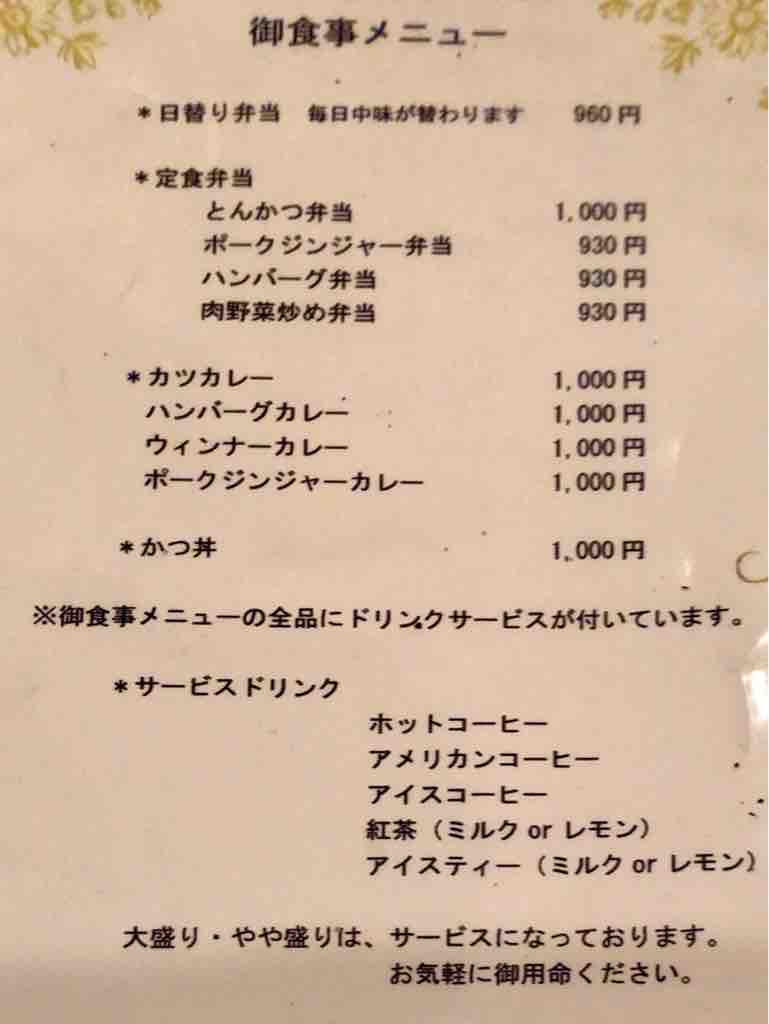 御食事メニュー
＊日替り弁当 毎日中味が替わります 960円
＊定食弁当
とんかつ弁当 1,000円
ポークジンジャー弁当 930円
ハンバーグ弁当 930円
肉野菜炒め弁当 930円
＊カツカレー 1,000円
ハンバーグカレー 1,000円
ウィンナーカレー 1,000円
ポークジンジャーカレー 1,000円
＊かつ丼 1,000円
※御食事メニューの全品にドリンクサービスが付いています。
＊サービスドリンク
ホットコーヒー
アメリカンコーヒー
アイスコーヒー
紅茶（ミルク or レモン）
アイスティー（ミルク or レモン）
大盛り・やや盛りは、サービスになっております。
お気軽に御用命ください。